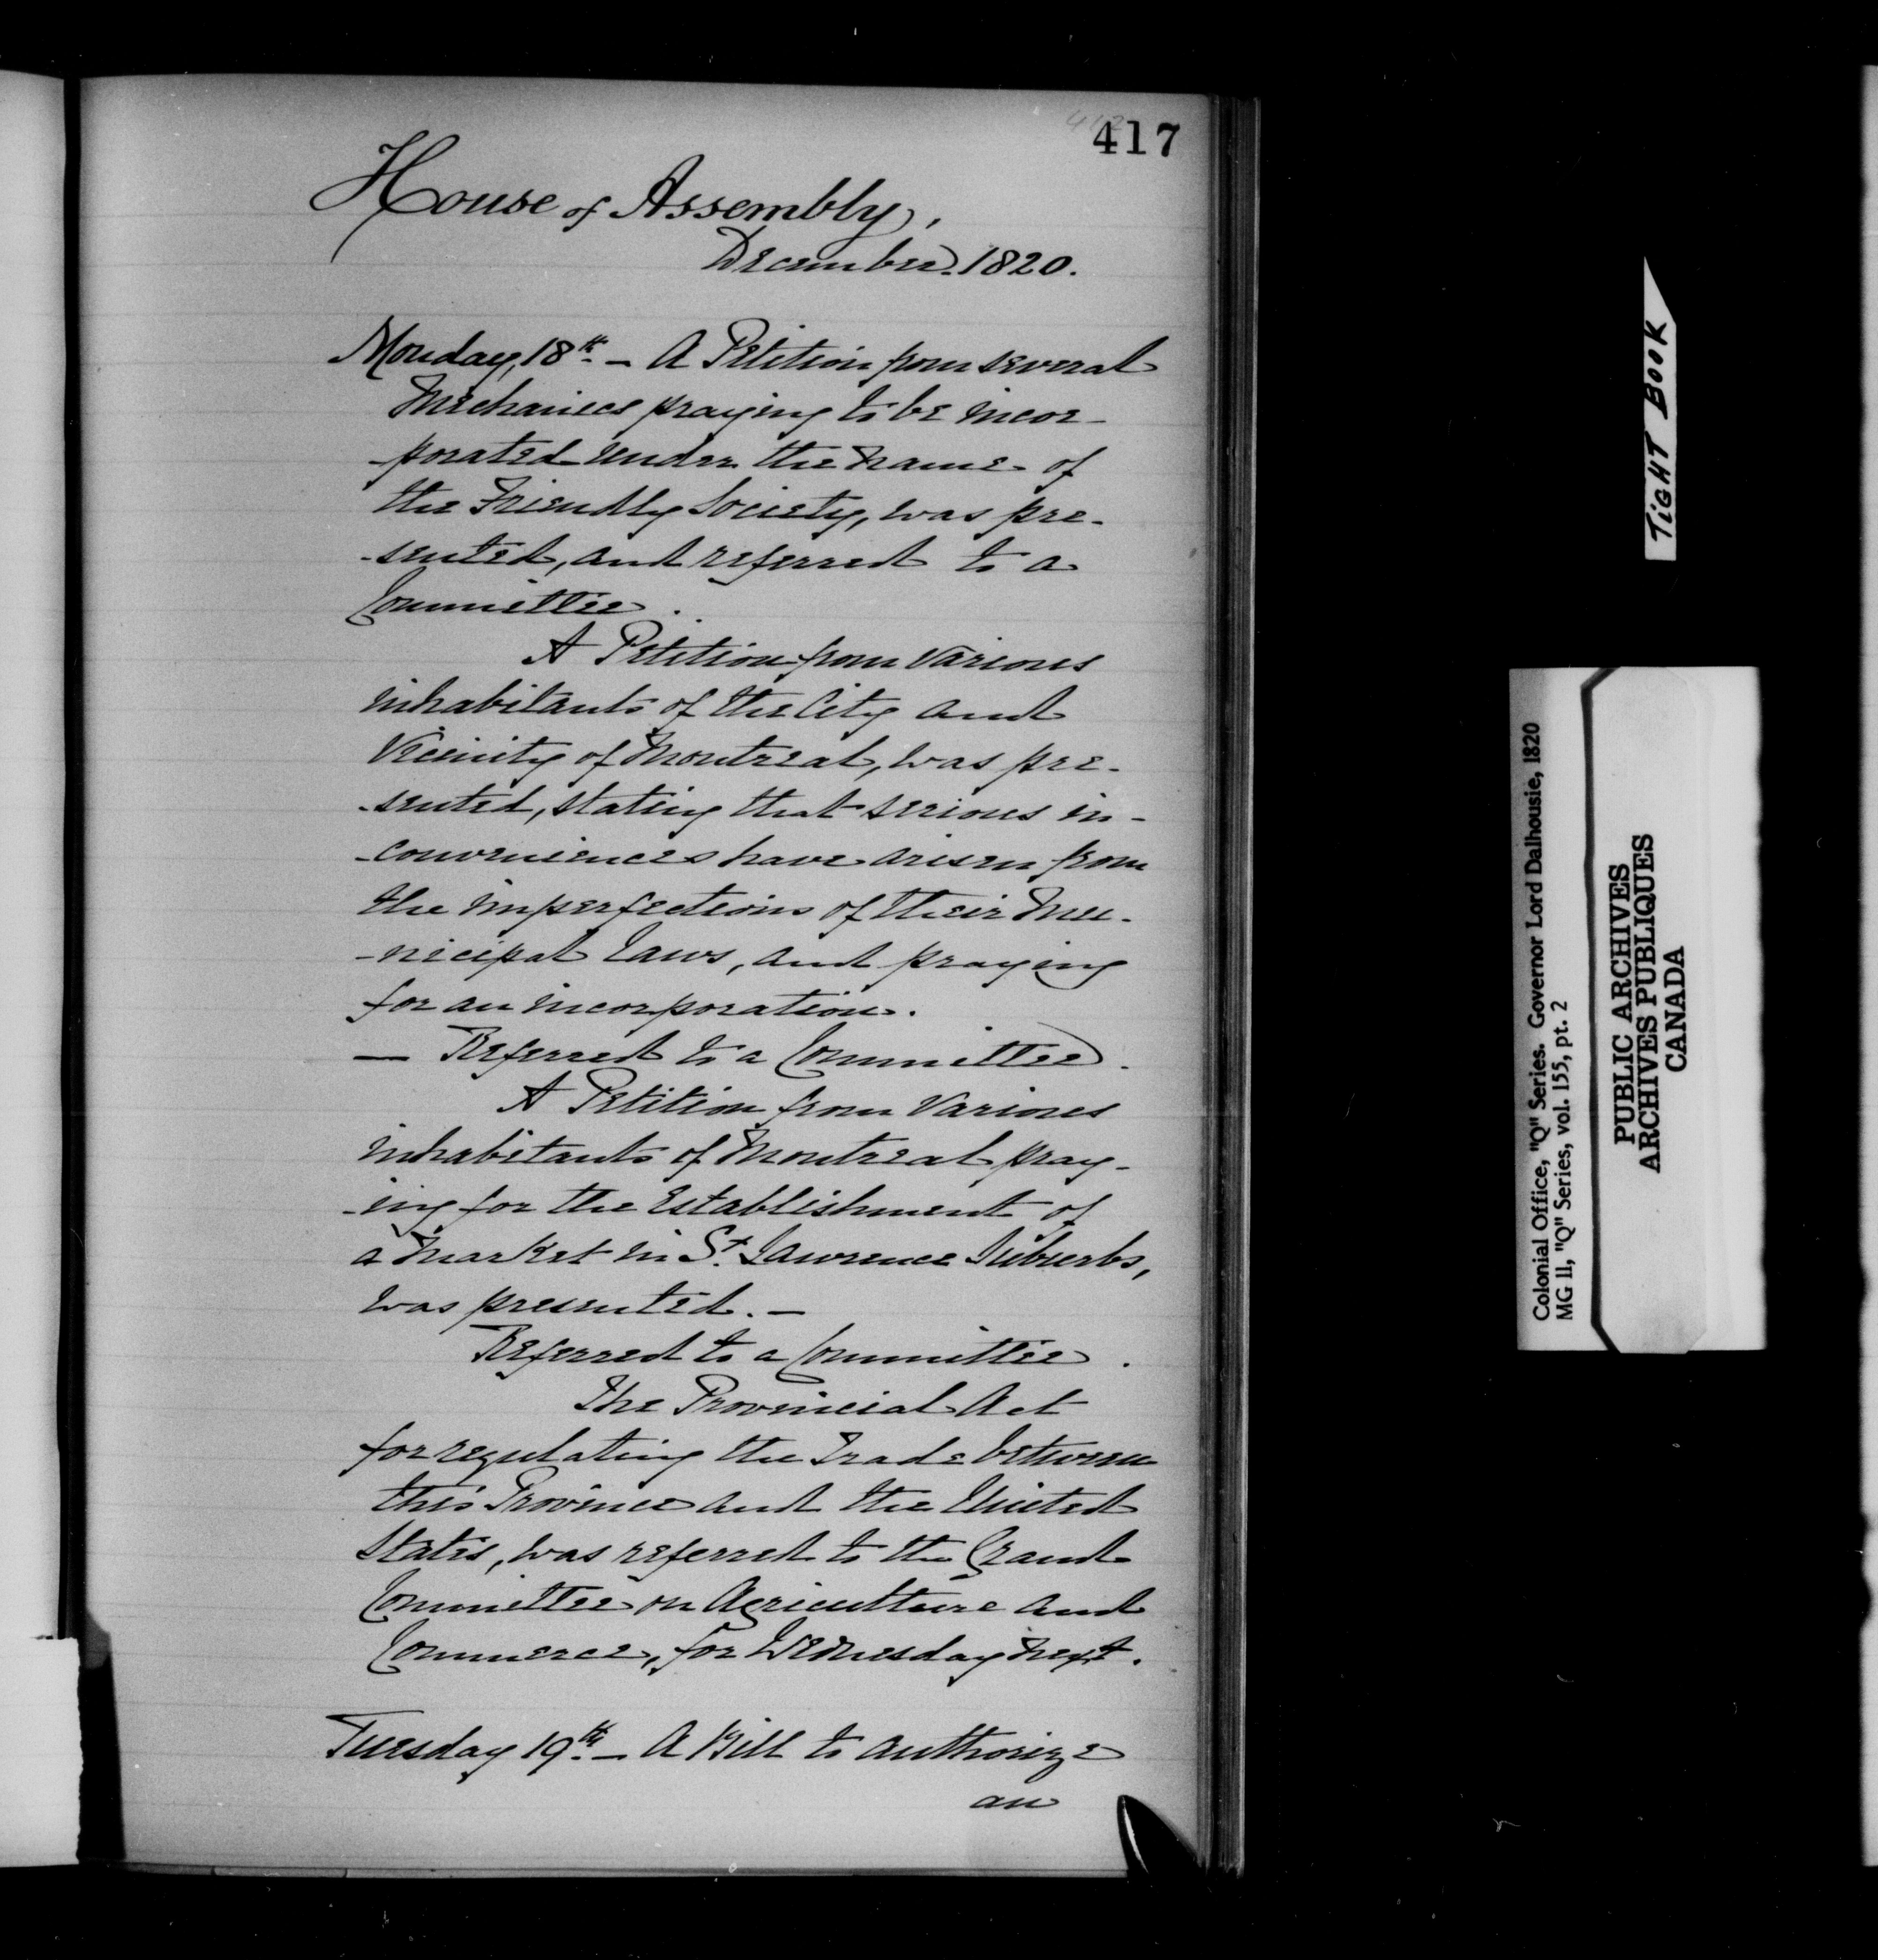 417
House of Assembly,
December 1820.
Monday, 18th. — A Petition from several
Mechanics praying to be incor-
-porated under the name of
the Friendly Society, was pre-
-sented, and referred to a
Committee.
A Petition from various
inhabitants of the City and
Vicinity of Montreal, was pre-
-sented, stating that serious in-
-conveniences have arisen from
the imperfections of their Mu-
-nicipal Laws, and praying
for an incorporation.
— Referred to a Committee.
A Petition from various
inhabitants of Montreal pray-
-ing for the Establishment of
a Market in St. Lawrence Suburbs,
was presented. —
Referred to a Committee.
The Provincial Act
for regulating the Trade between
this Province and the United
States, was referred to the Grand
Committee on Agriculture and
Commerce, for Wednesday next.
Tuesday 19th. — A Bill to authorize
an
TIGHT BOOK
Colonial Office, "Q" Series. Governor Lord Dalhousie, 1820
MG 11, "Q" Series, vol. 155, pt. 2
PUBLIC ARCHIVES
ARCHIVES PUBLIQUES
CANADA